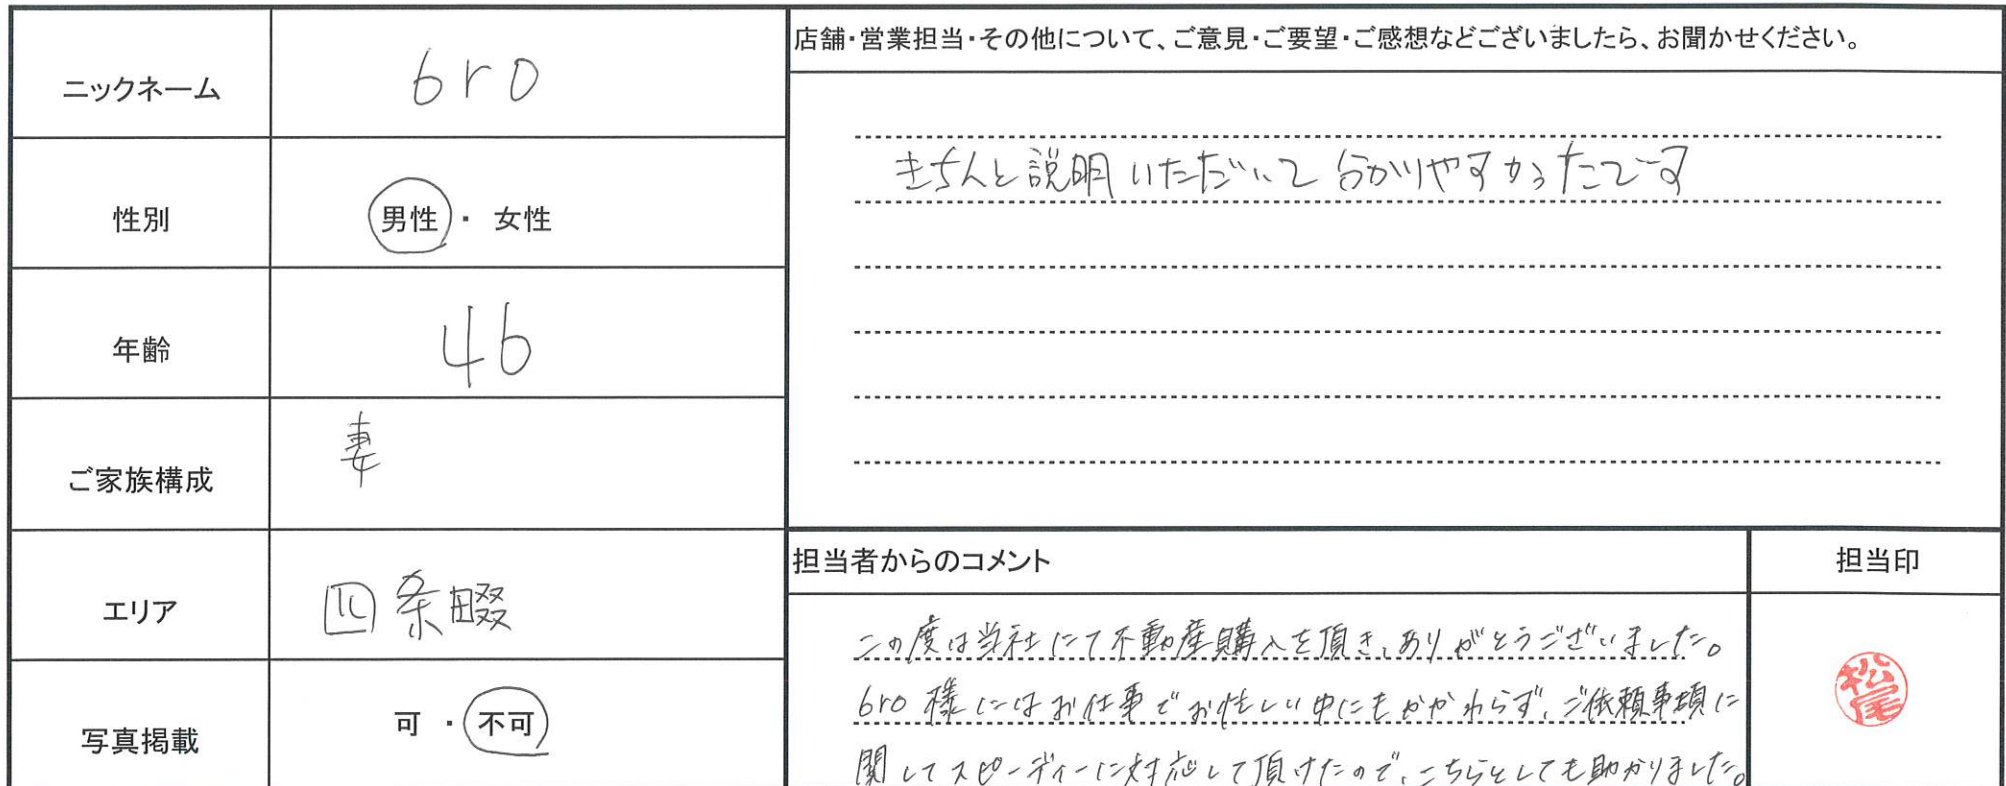 ニックネーム
6ro
性別
男性 ・ 女性
年齢
46
ご家族構成
妻
エリア
四条畷
写真掲載
可 ・ 不可
店舗・営業担当・その他について、ご意見・ご要望・ご感想などございましたら、お聞かせください。
きちんと説明いただいて分かりやすかったです
担当者からのコメント
この度は当社にて不動産購入を頂き、ありがとうございました。
6ro様にはお仕事でお忙しい中にもかかわらず、ご依頼事項に
関してスピーディーに対応して頂けたので、こちらとしても助かりました。
担当印
松尾